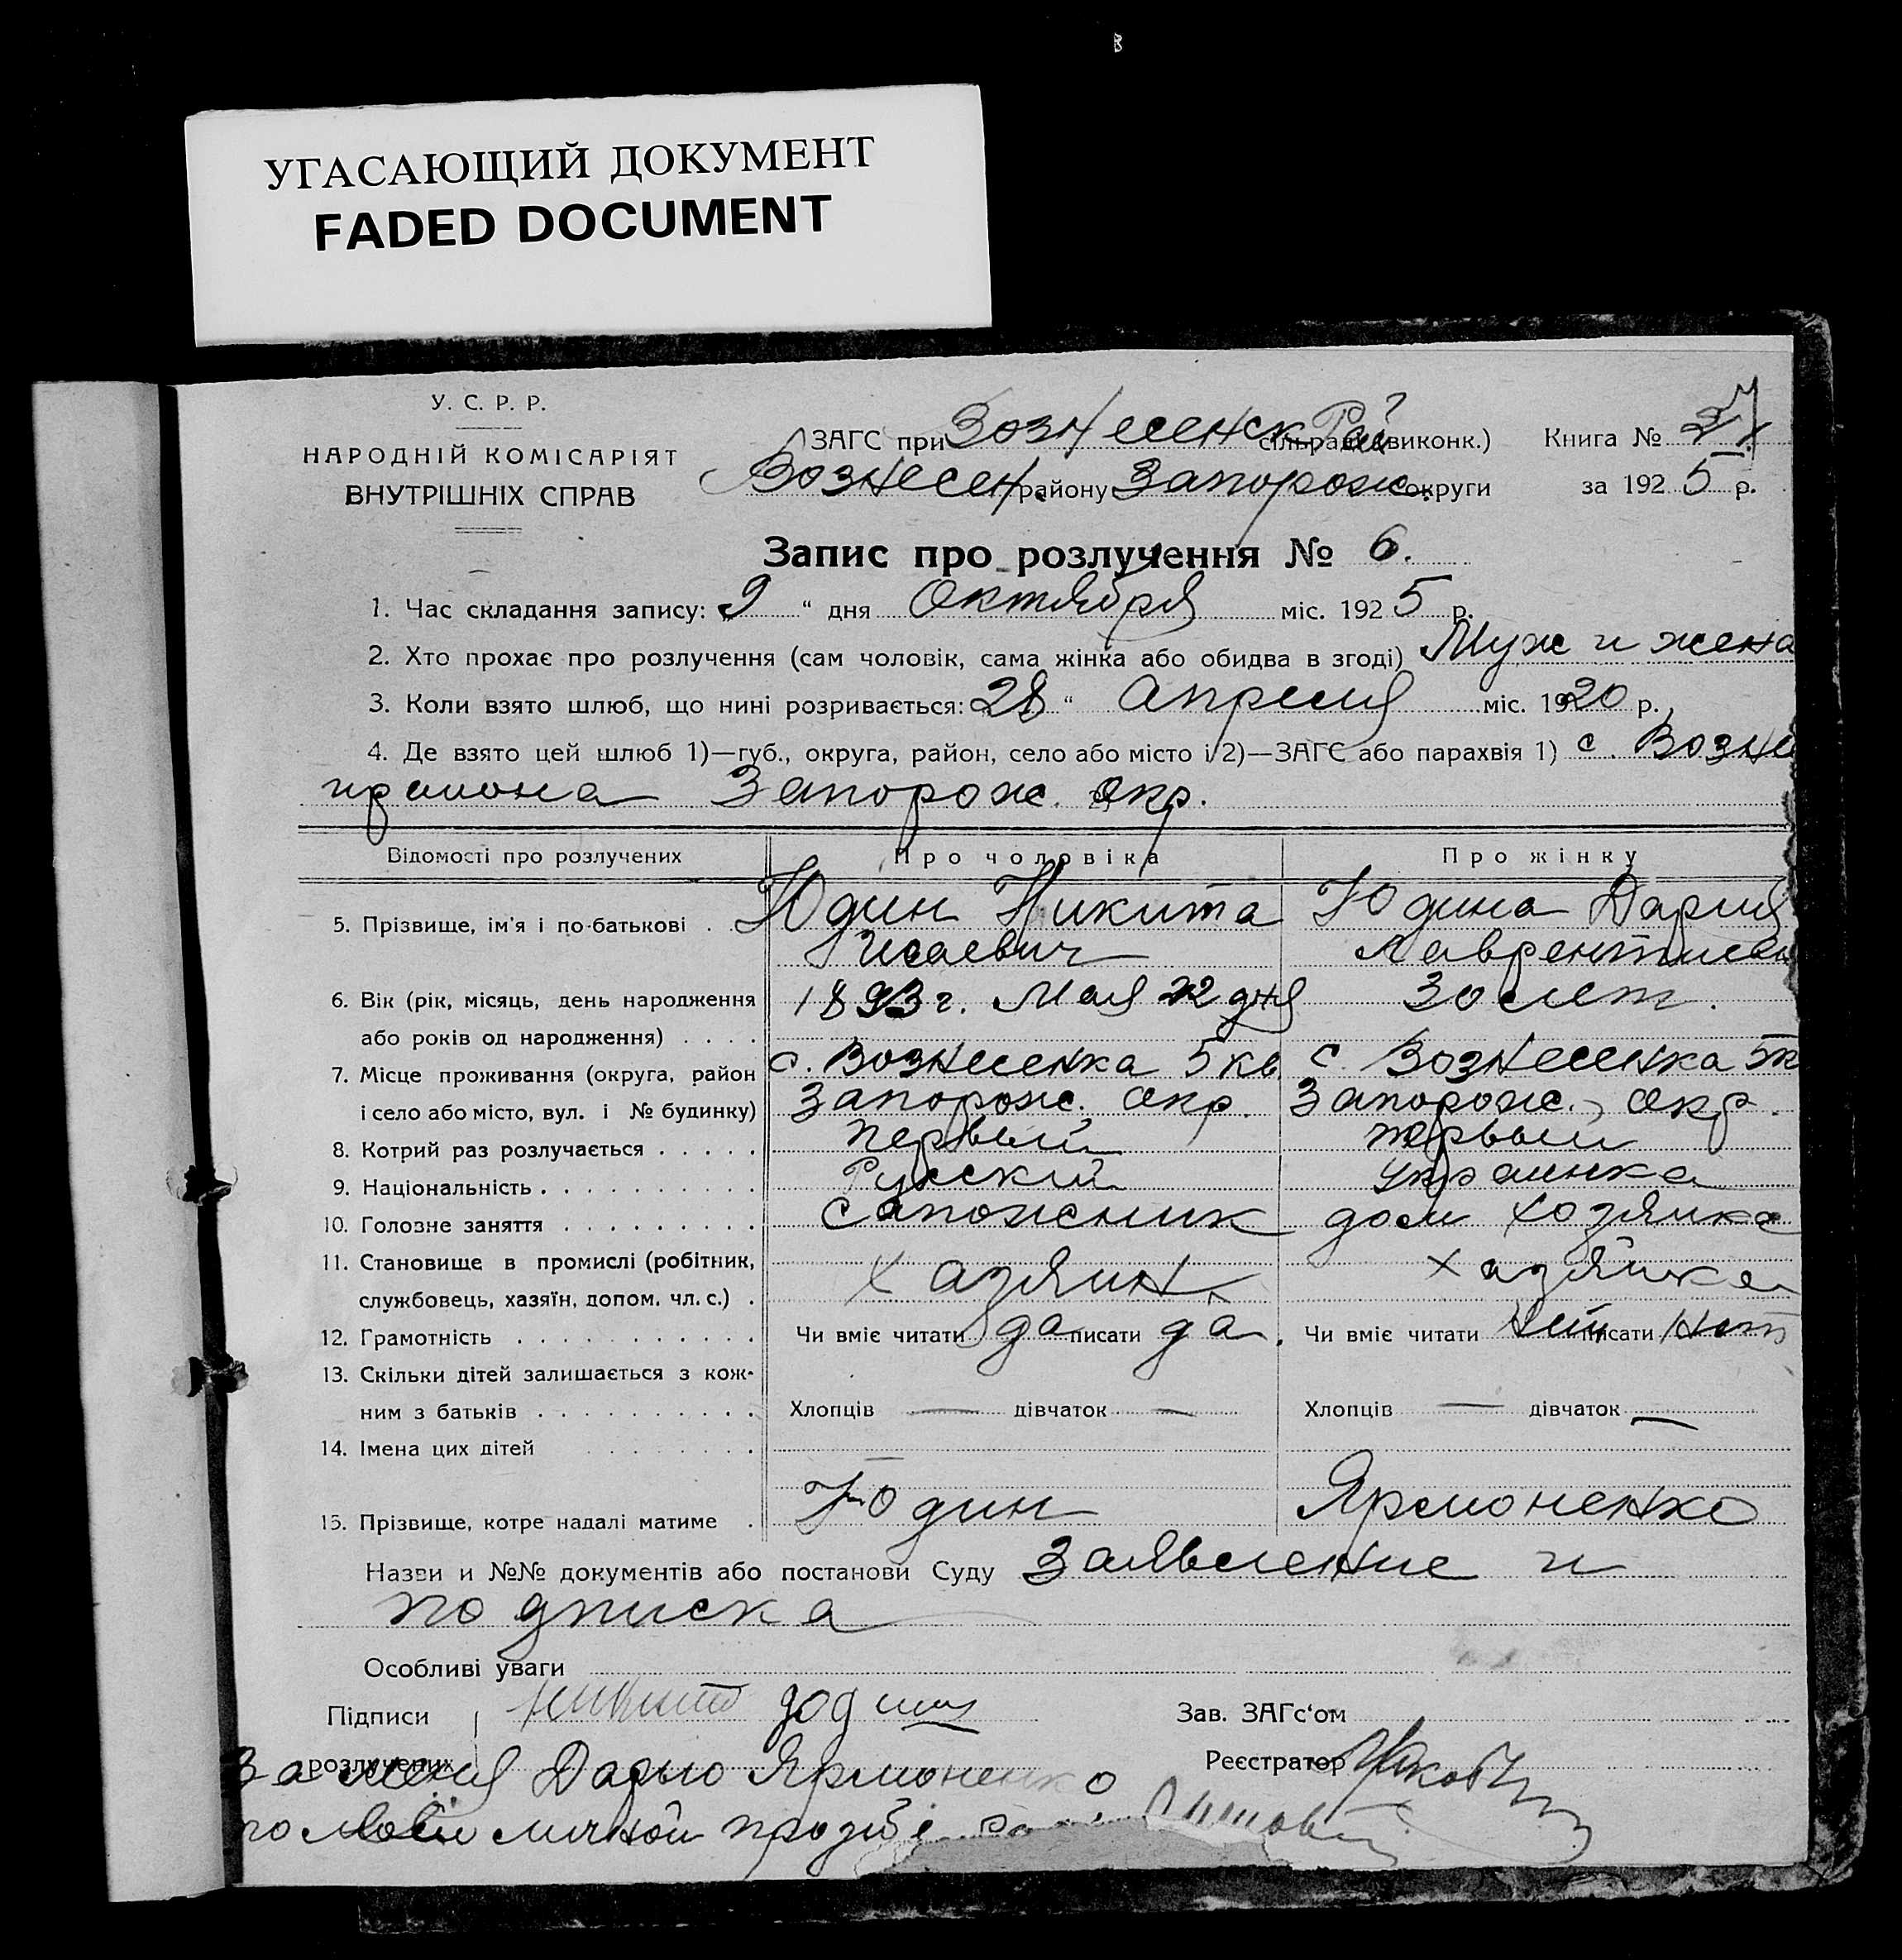 УГАСАЮЩИЙ ДОКУМЕНТ
FADED DOCUMENT
У. С. Р. Р.
НАРОДНІЙ КОМІСАРІЯТ
ВНУТРІШНІХ СПРАВ
ЗАГС при Вознесенск Рай сільраді (виконк.) Книга №
Вознесен. району Запорож. округи за 1925 р.
Запис про розлучення № 6.
1. Час складання запису: 9 “ дня Октября міс. 1925 р.
2. Хто прохає про розлучення (сам чоловік, сама жінка або обидва в згоді) Муж и жена
3. Коли взято шлюб, що нині розривається: 28 “ Апреля міс. 1920 р.
4. Де взято цей шлюб 1)—губ., округа, район, село або місто і 2)—ЗАГС або парахвія 1) с. Возне
района Запорож. окр.
Відомості про розлучених Про чоловіка Про жінку
5. Прізвище, ім'я і по-батькові . . Юдин Никита Юдина Дария
Исаевич Лаврентиевн
6. Вік (рік, місяць, день народження 1893 г. Мая 22 дня 30 лет.
або років од народження) . . . .
7. Місце проживання (округа, район с. Вознесенка 5 кв. с. Вознесенка 5 к
і село або місто, вул. і № будинку) Запорож. окр. Запорож. окр.
8. Котрий раз розлучається . . . . . первый первый
9. Національність . . . . . . . . . . Русский украинка
10. Головне заняття . . . . . . . . . сапожник дом хозяйка
11. Становище в промислі (робітник, хазяин хазяйка
службовець, хазяїн, допом. чл. с.) .
12. Грамотність . . . . . . . . . . . Чи вміє читати да писати да. Чи вміє читати нет писати нет
13. Скільки дітей залишається з кож-
ним з батьків . . . . . . . . . . Хлопців — дівчаток — Хлопців — дівчаток —
14. Імена цих дітей . . . . . . . .
15. Прізвище, котре надалі матиме . Юдин Ярмоненко
Назви и №№ документів або постанови Суду Заявление и
подписка
Особливі уваги
Підписи Никита Зав. ЗАГс‘ом
розлучених Реєстратор
За меня Дарью Ярмоненко
по моей личной прозбі